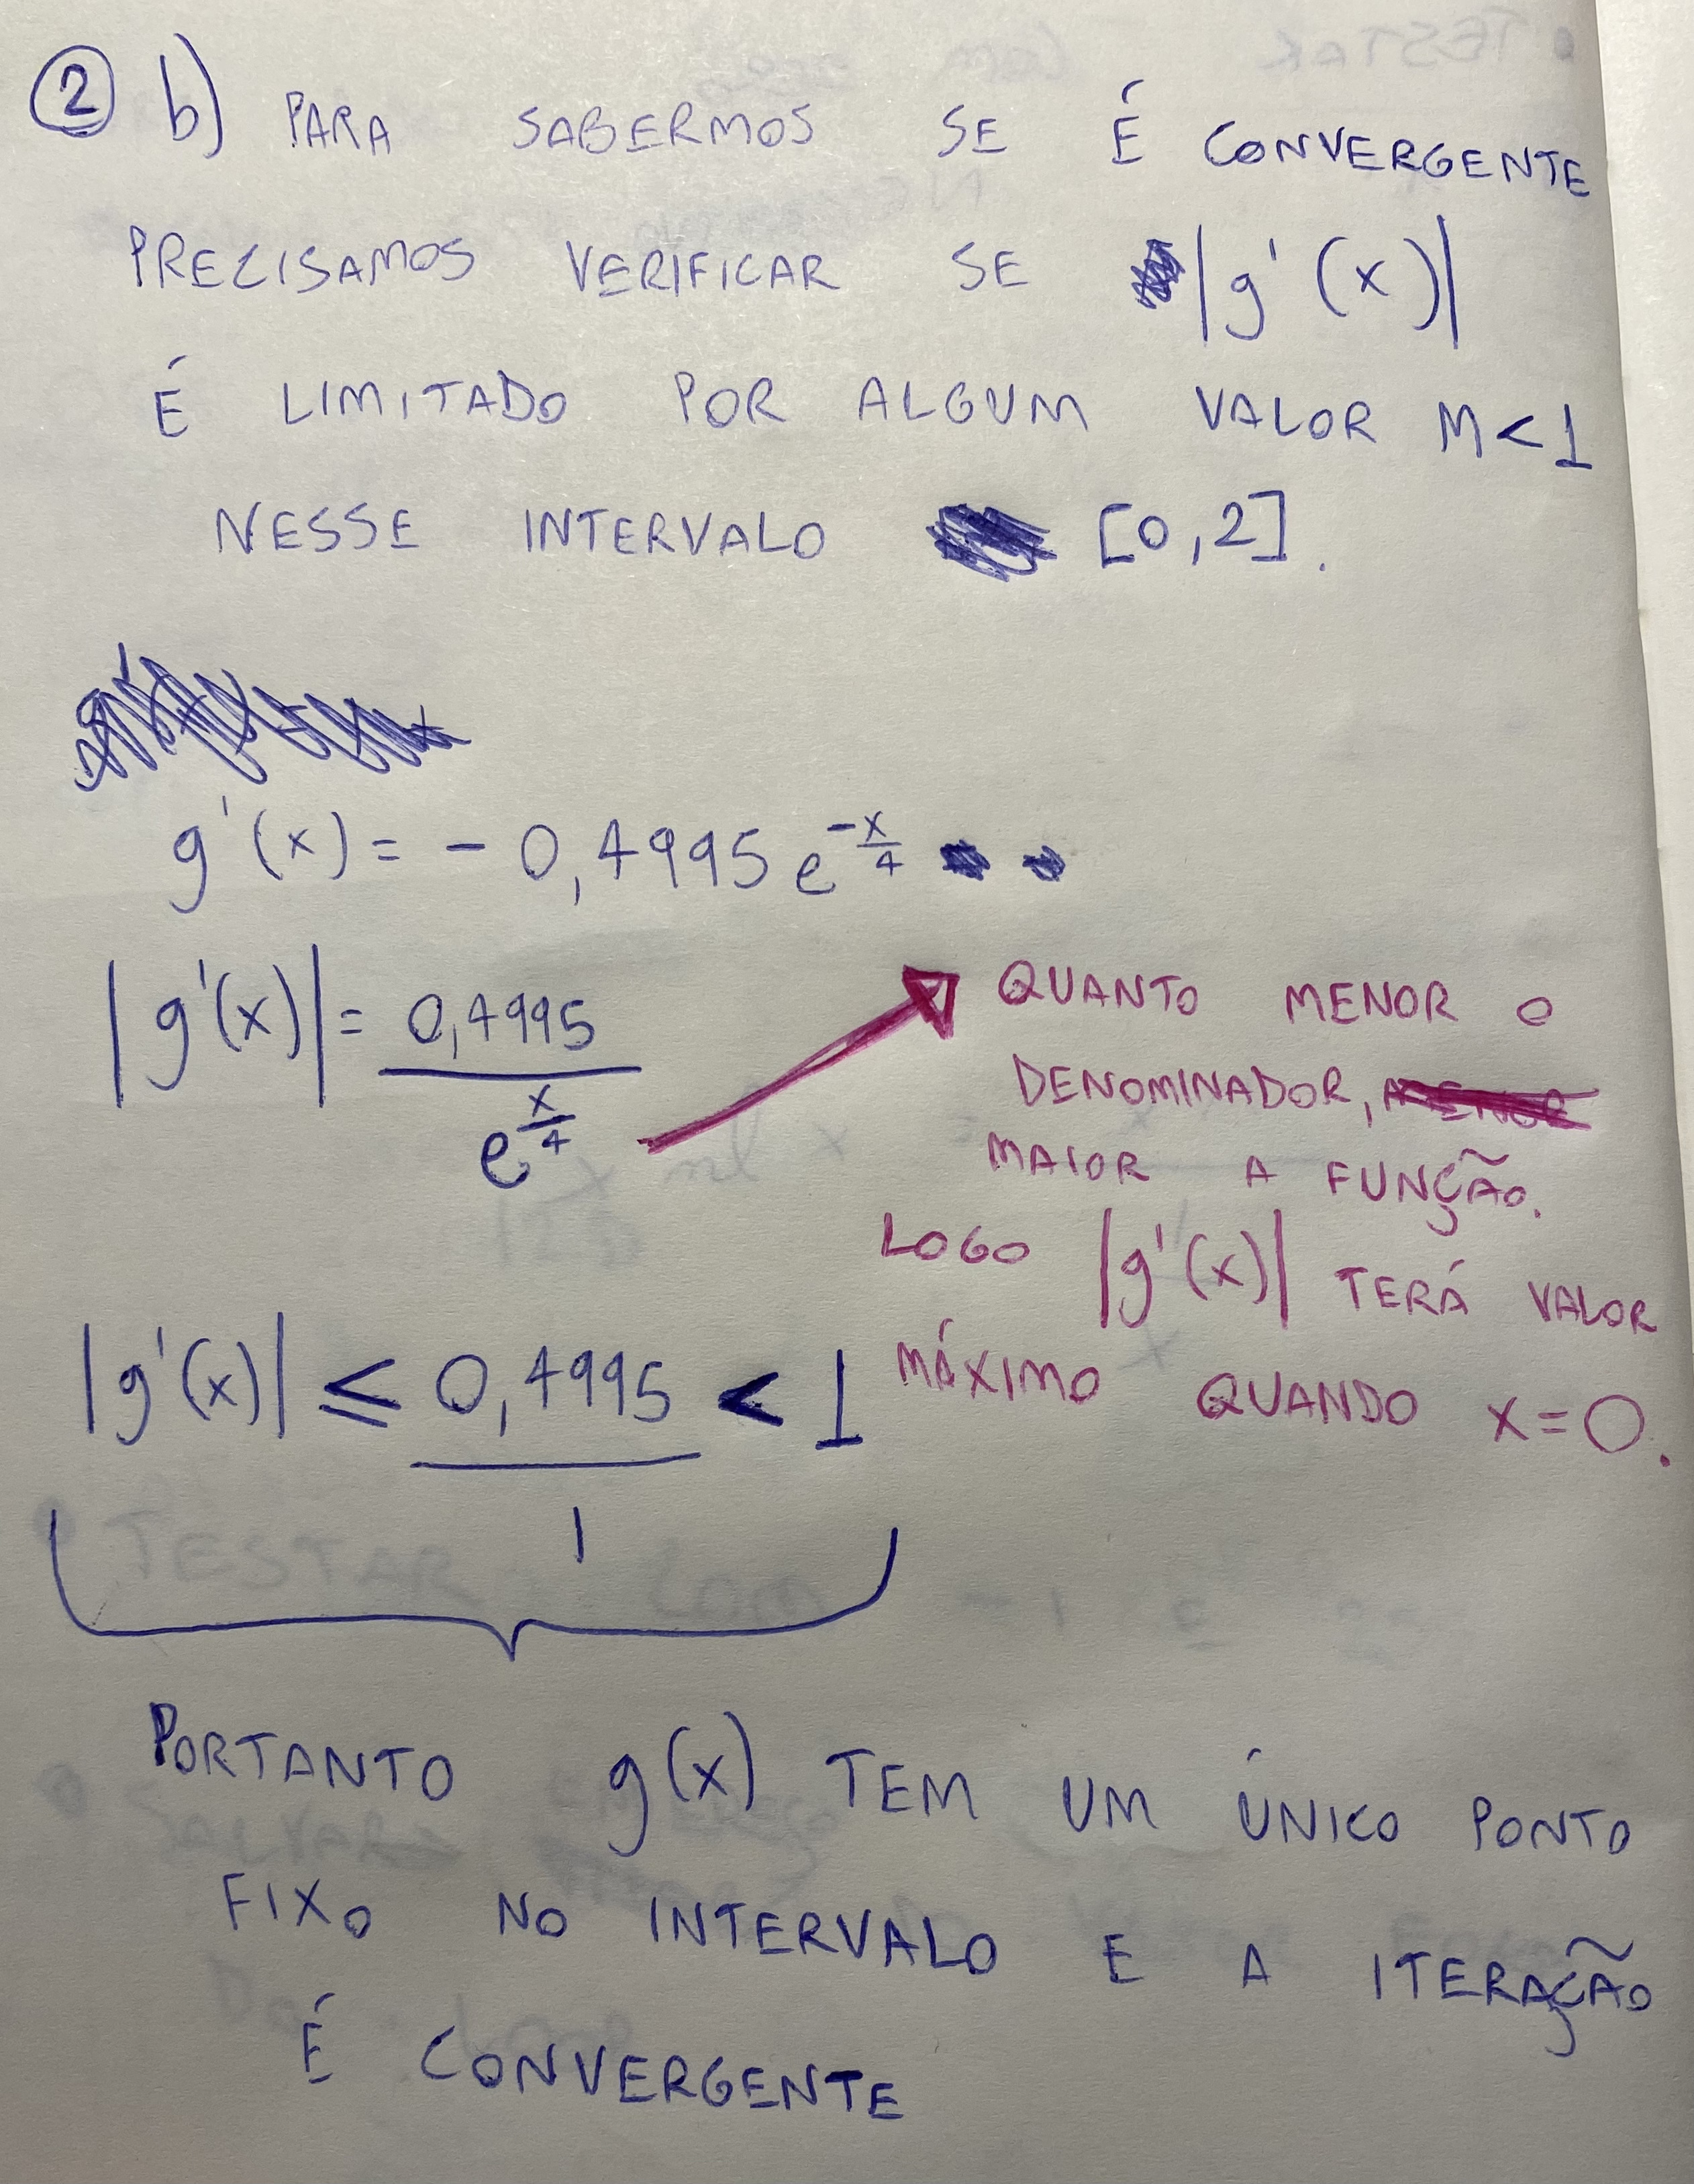 ② b) PARA SABERMOS SE É CONVERGENTE
PRECISAMOS VERIFICAR SE |g'(x)|
É LIMITADO POR ALGUM VALOR M<1
NESSE INTERVALO [0,2].
g'(x) = - 0,4995 e^{-x/4}
|g'(x)| = 0,4995 / e^{x/4}
QUANTO MENOR O
DENOMINADOR,
MAIOR A FUNÇÃO.
LOGO |g'(x)| TERÁ VALOR
MÁXIMO QUANDO x=0.
|g'(x)| ≤ 0,4995 / 1 < 1
PORTANTO g(x) TEM UM ÚNICO PONTO
FIXO NO INTERVALO E A ITERAÇÃO
É CONVERGENTE